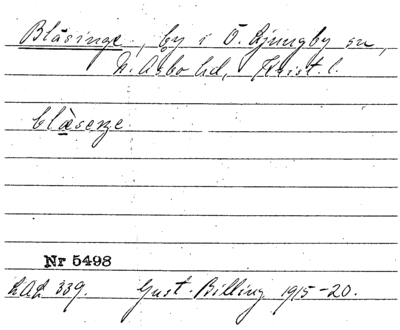 Blåsinge, by i Ö. Ljungby sn,
N. Åsbo hd, Krist. l.
blæseŋe
Nr 5498
LAL 339. Gust. Billing 1915-20.